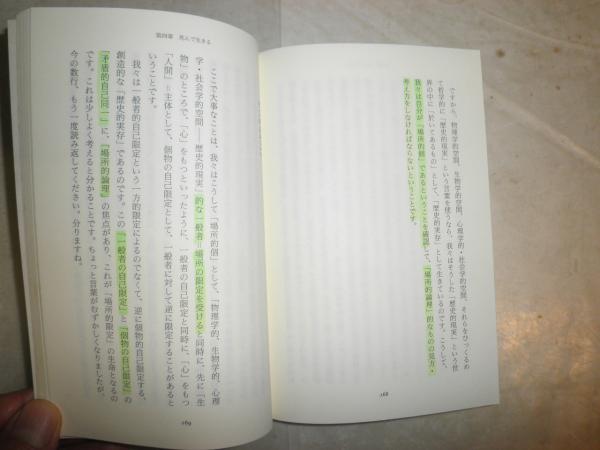 ですから、物理学的空間、生物学的空間、心理学的・社会学的空間、それらをひっくるめ
て哲学的に「歴史的現実」という言葉を使うなら、我々はそうした「歴史的現実」という世
界の中に「於いてあるもの」として、「歴史的実存」として生きているのです。こうして、
我々は自分が「場所的個」であるということを確認して、「場所的論理」的なものの見方・
考え方をしなければならないということです。
168
第四章 死んで生きる
ここで大事なことは、我々はこうして「場所的個」として、「物理学的、生物学的、心理
学・社会学的空間――歴史的現実」的な一般者＝場所の限定を受けると同時に、先に「生
物」のところで、「心」をもつといったように、一般者の自己限定と同時に、「心」をもつ
「人間」＝主体として、個物の自己限定として、一般者に対して逆に限定することがあると
いうことです。
我々は一般者的自己限定という一方的限定によるのでなくて、逆に個物的自己限定する、
創造的な「歴史的実存」であるのです。この「一般者の自己限定」と「個物の自己限定」の
「矛盾的自己同一」に、「場所的論理」の焦点があり、これが「場所的限定」の生命となるの
です。これは少しよく考えると分かることです。ちょっと言葉がむずかしくなりましたが、
今の数行、もう一度読み返してください。分りますね。
169